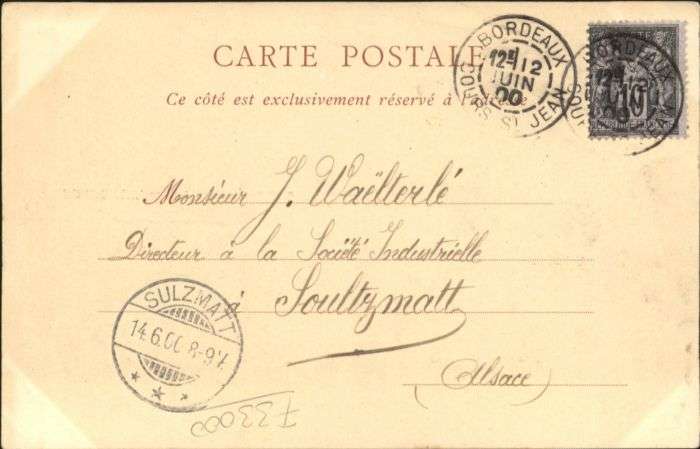 CARTE POSTALE
Ce côté est exclusivement réservé à l'adresse
BORDEAUX
12E 12
JUIN
00
COURS ST JEAN
BORDEAUX
10
Monsieur J. Waëlterlé
Directeur à la Société Industrielle
à Soultzmatt
(Alsace)
SULZMATT
14.6.00.8-9V.
73300